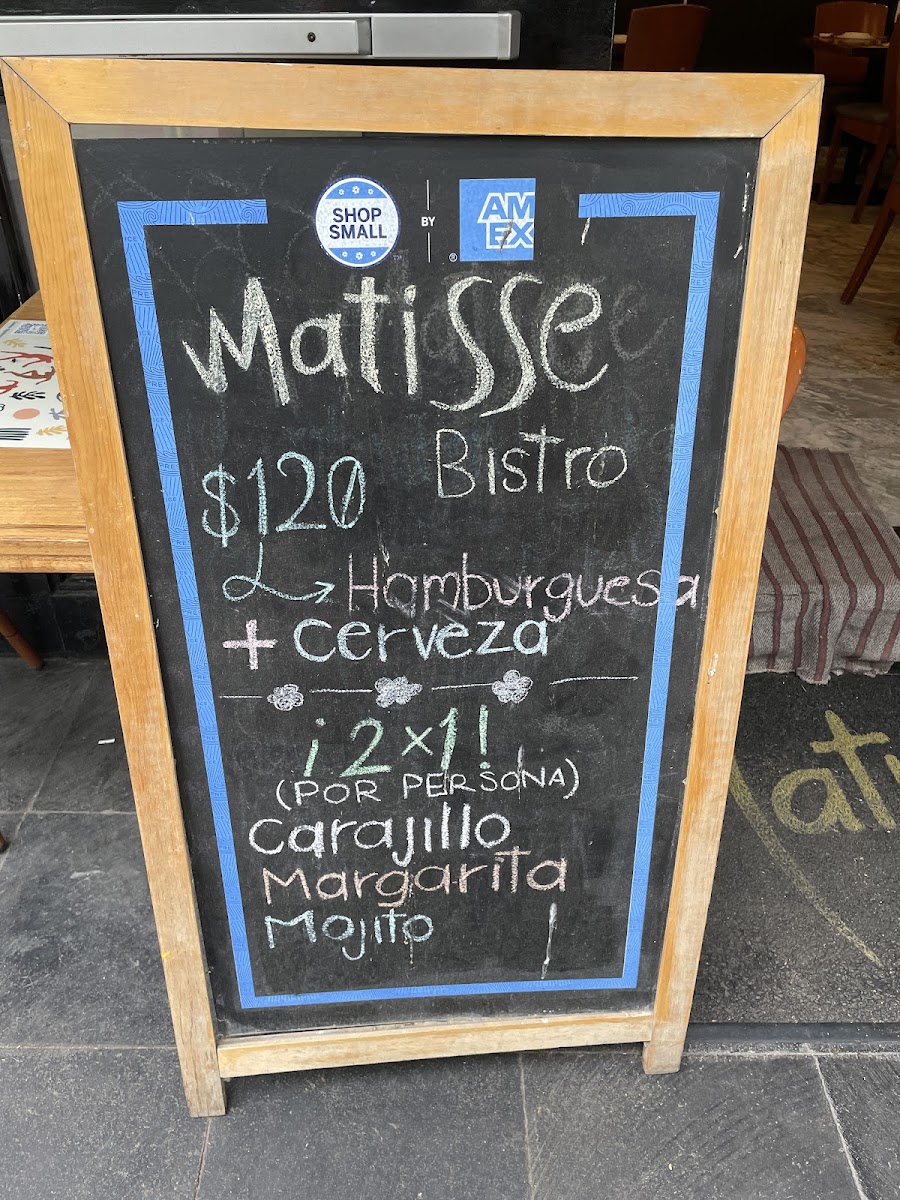 SHOP
SMALL
BY
AM
EX
®
Matisse
Bistro
$120
Hamburguesa
+ Cerveza
¡2x1!
(POR PERSONA)
Carajillo
Margarita
Mojito